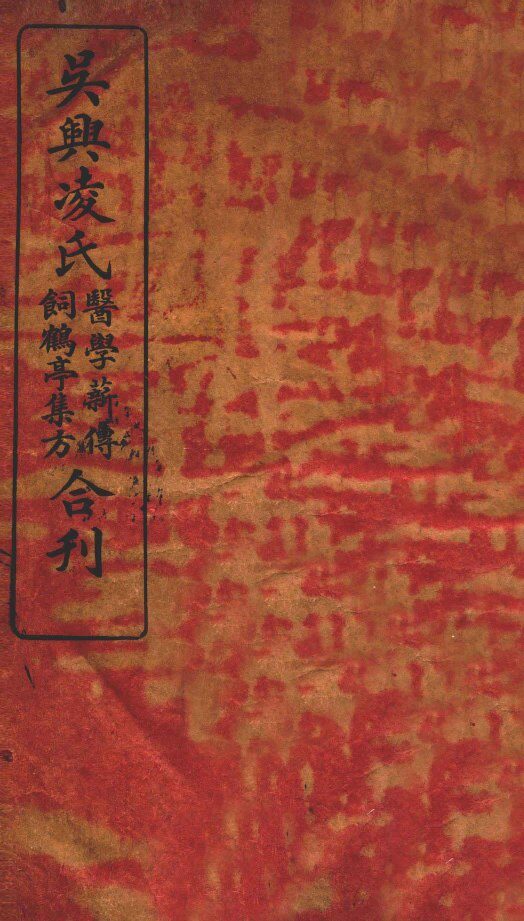 吳興凌氏
醫學薪傳
飼鶴亭集方
合刊